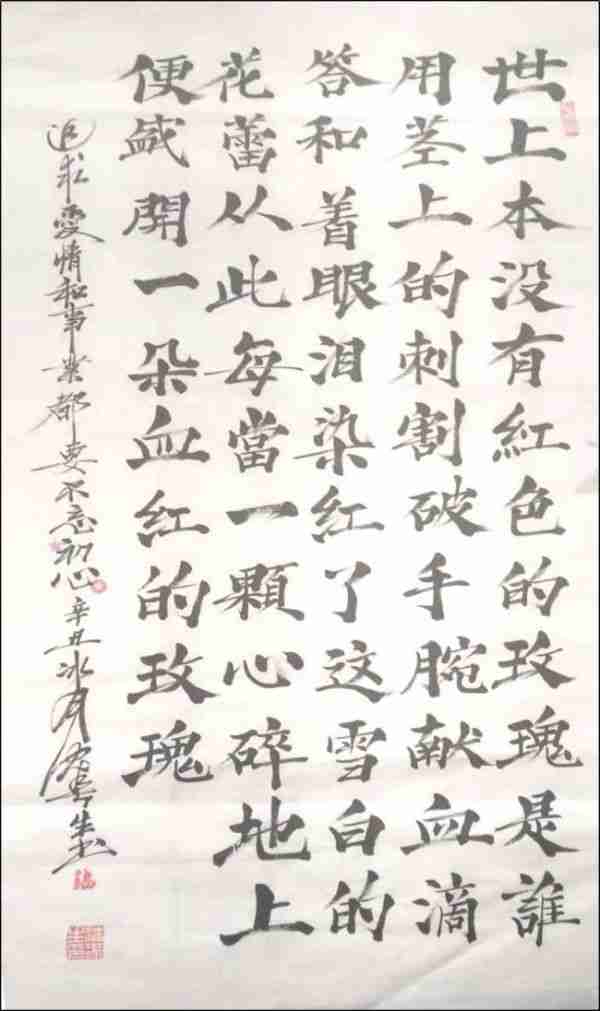 世上本没有紅色的玫瑰是誰
用茎上的刺割破手腕献血滴
答和着眼泪染紅了这雪白的
花蕾从此每當一顆心碎地上
便盛開一朵血紅的玫瑰
追求愛情和事業都要不忘初心辛丑冰月